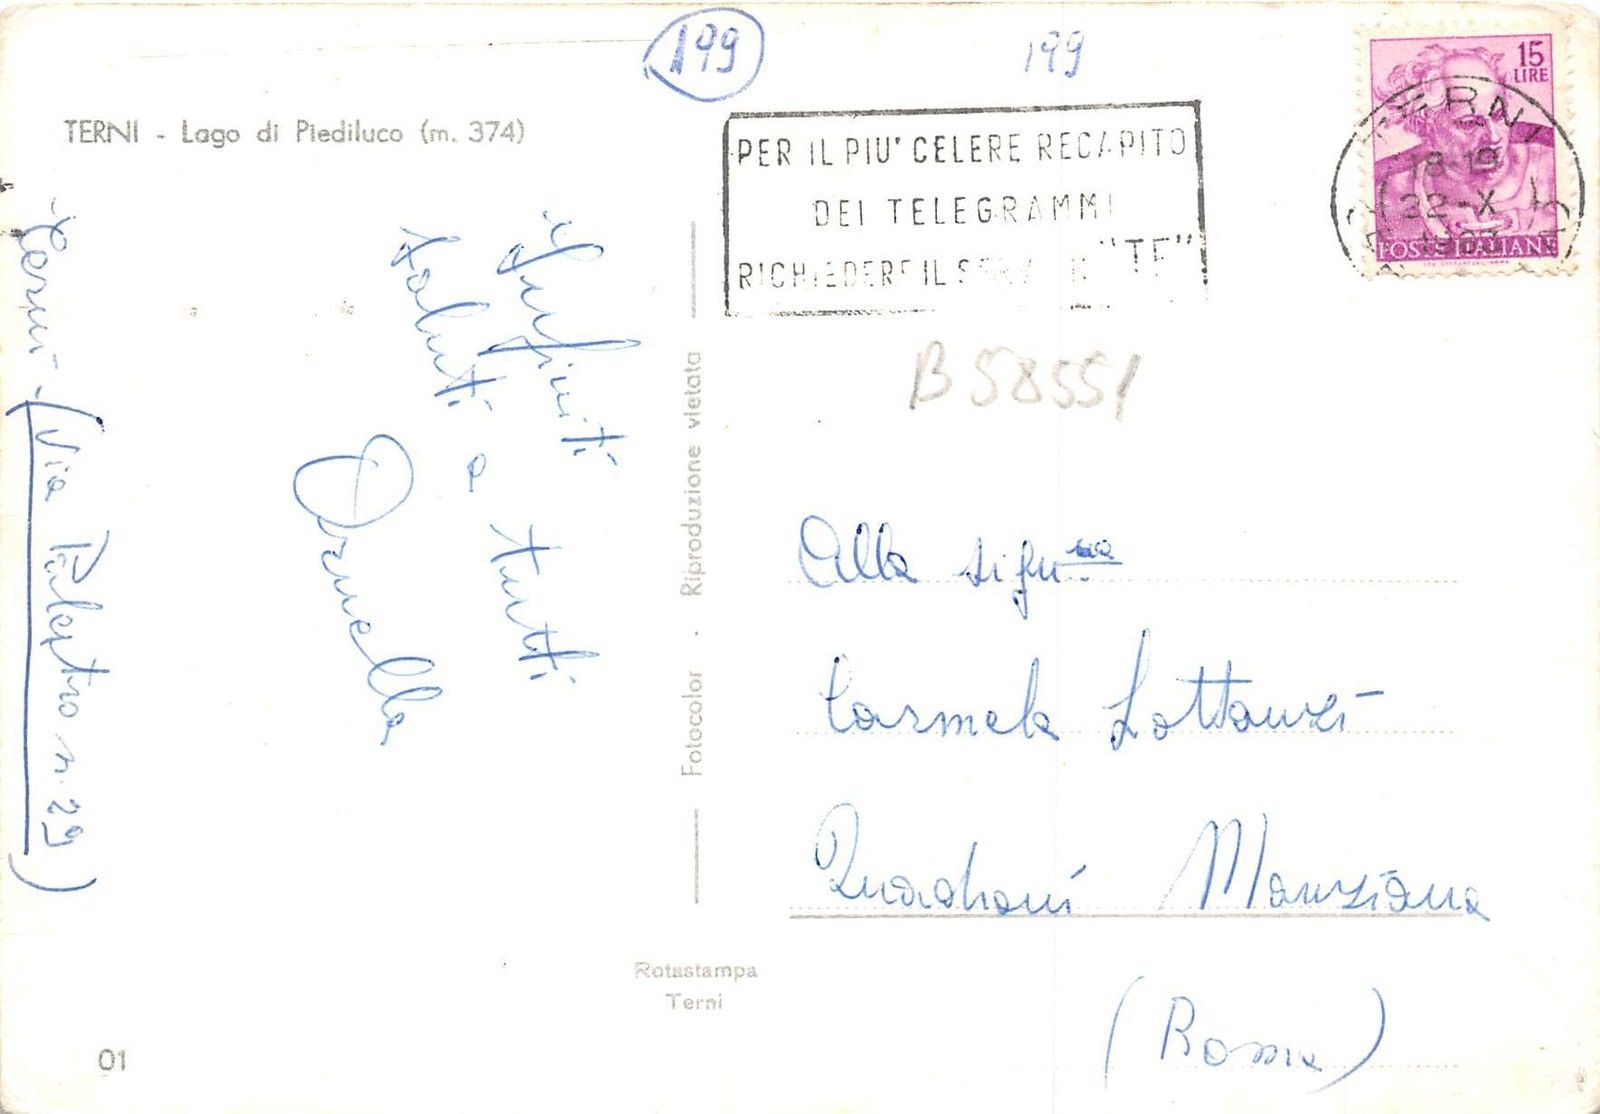 199
199
TERNI - Lago di Piediluco (m. 374)
15
LIRE
TERNI
18-19
22-X
POSTE ITALIANE
PER IL PIU' CELERE RECAPITO
DEI TELEGRAMMI
RICHIEDERE IL "TF"
B 58551
Terni - (Via Palestro n. 29)
Infiniti
saluti a tutti
Ornella
Fotocolor - Riproduzione vietata
Alla sign.ra
Carmela Lottanzi
Quadroni Manziana
(Roma)
Rotastampa
Terni
01